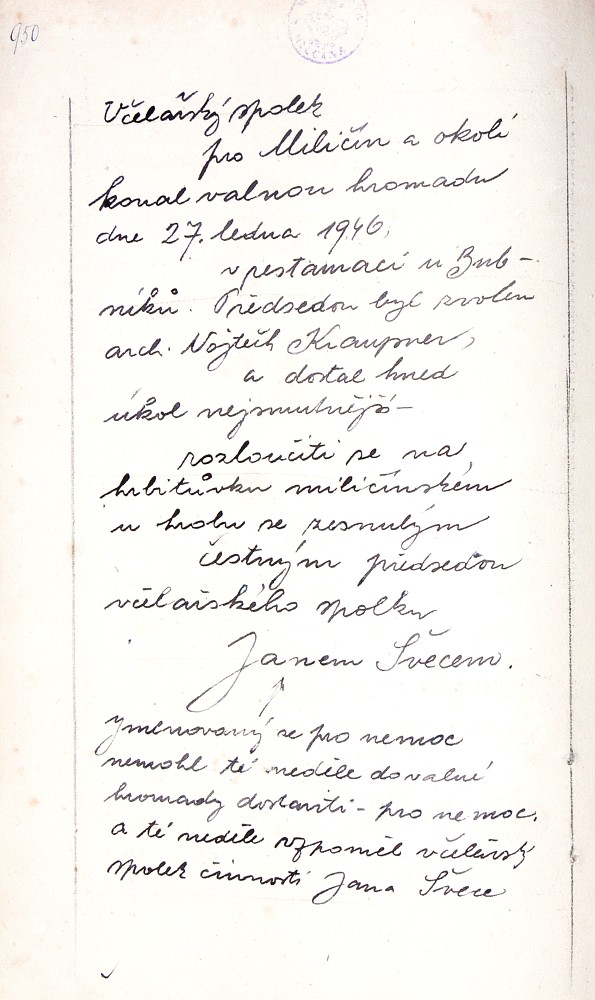 950
Včelařský spolek
pro Miličín a okolí
konal valnou hromadu
dne 27. ledna 1946,
v restauraci u Bub-
níků. Předsedou byl zvolen
arch. Vojtěch Kraupner,
a dostal hned
úkol nejsmutnější -
rozloučiti se na
hrbitůvku miličínském
u hrobu se zesnulým
čestným předsedou
včelařského spolku
Janem Švecem.
jmenovaný se pro nemoc
nemohl té neděle do valné
hromady dostaviti - pro nemoc.
a té neděle vzpoměl včelářský
spolek činnosti Jana Švece